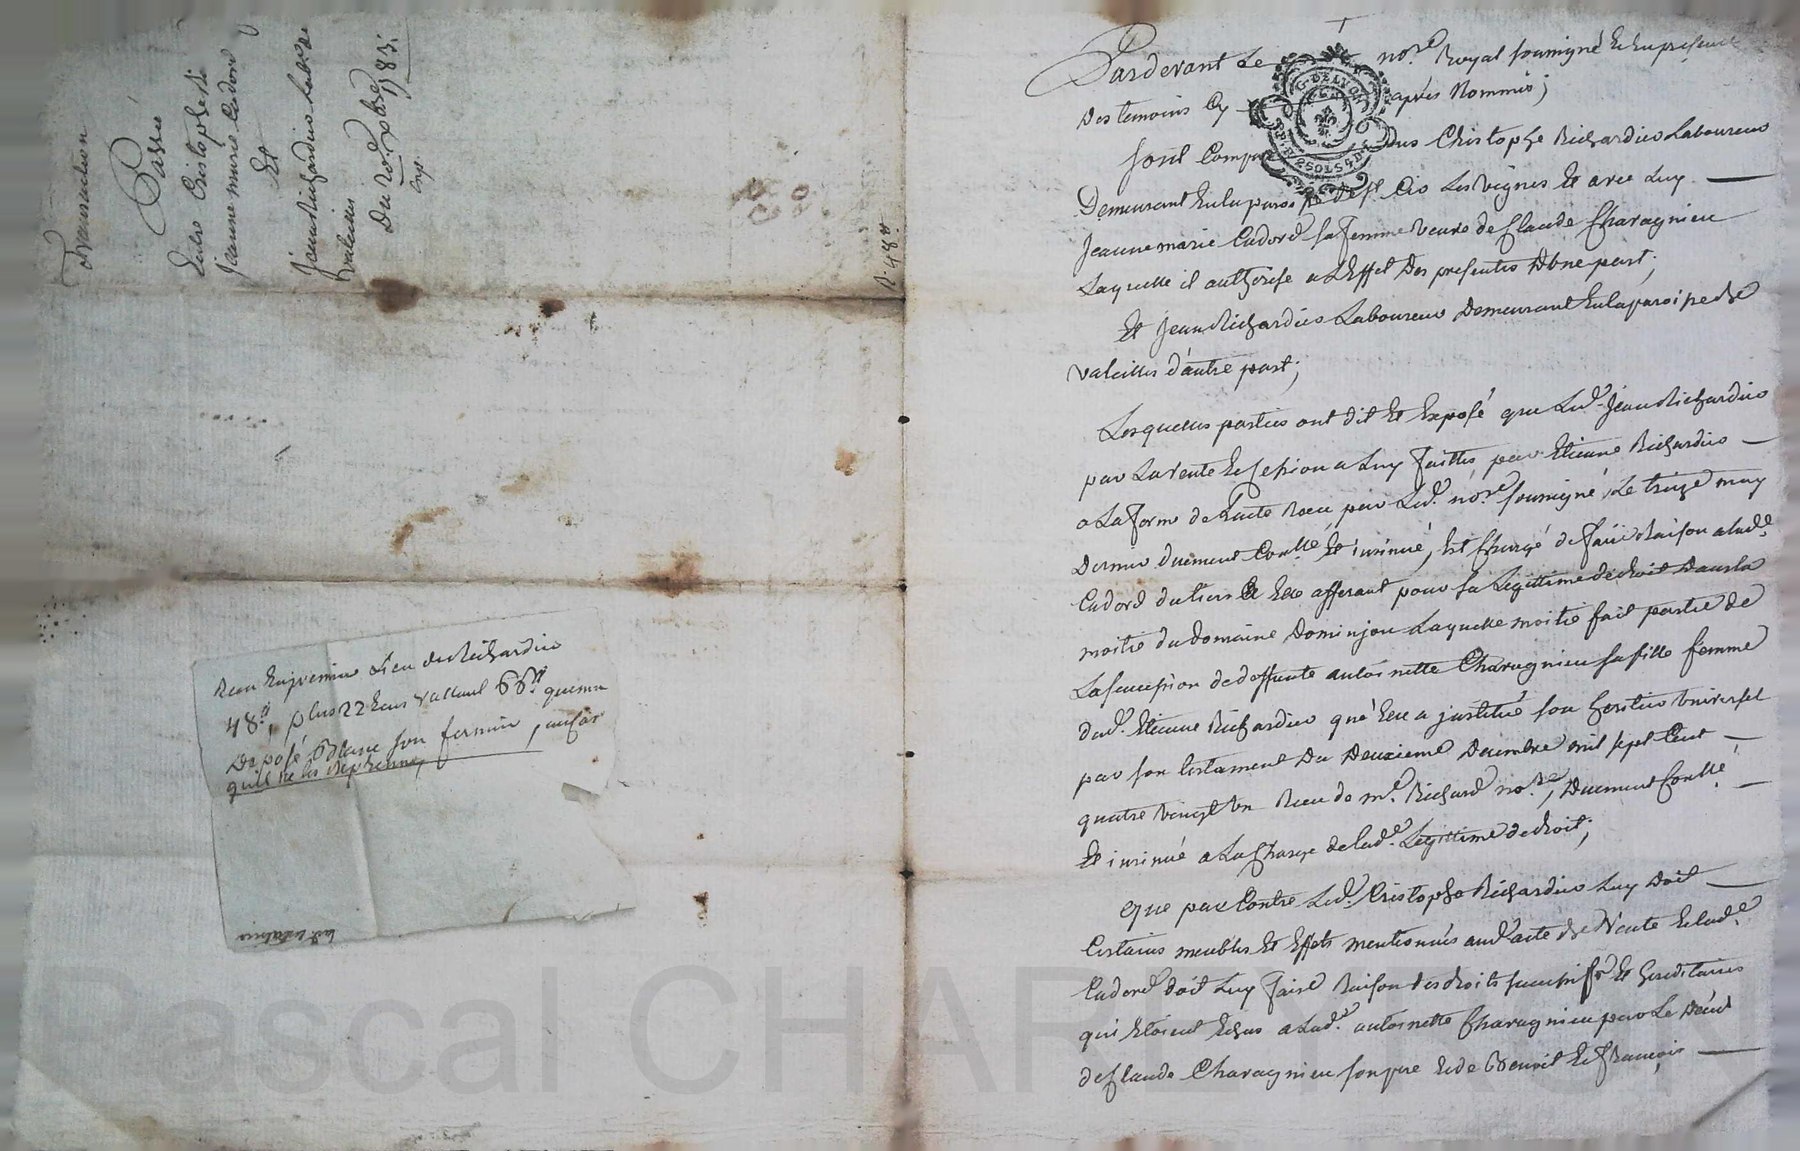 Transaction
Passé
Entre Cristophe R
Jeanne marie Cadord
Et
Jean Richardier Lab
valeilles
Du 10e 8bre 1783.
Exp.
R. 48 s.
Reçu En premier Lieu de Richardier
48ᵗᵗ, plus 22 Ecus vallant 66ᵗᵗ que m'a
Déposé Blanc son fermier, jusqu'à
Pardevant Le nore. Royal soussigné Et En presence
Des temoins Cy après Nommés;
G. DE LYON
2 SOLS 4 D.
sont Comparus Christophe Richardier Laboureur
Demeurant En la paroisse De st. Cir Les Vignes Et avec Luy
Jeanne marie Cadord sa femme veuve de Claude Charagnieu
Laquelle il authorise a L'Effet Des presentes D'une part;
Et Jean Richardier Laboureur Demeurant En la paroisse De
valeilles d'autre part;
Lesquelles parties ont dit Et Exposé que Led. Jean Richardier
par La vente Et Cession a Luy faittes par Etienne Richardier
a La forme de L'acte Reçu par Led. nore. soussigné, Le treize may
Dernier duement Conllé Et insinué, Est Chargé de faire Raison a lade.
Cadord du tiers a Elle afferant pour sa Legittime de droit Dans la
moitié du domaine Dominjon Laquelle moitié fait partie de
La succession de deffunte antoinette Charagnieu sa fille femme
dud. Etienne Richardier qu'Elle a institué son heritier universel
par son testament Du Deuxieme Decembre mil sept Cent
quatre vingt un Reçu de me. Richard nore, Duement Conllé
Et insinué a La Charge de lade. Legittime de droit;
Que par Contre Led. Cristophe Richardier Luy Doit
Certains meubles Et Effets mentionnés aud. acte De Vente Et lade.
Cadord doit Luy faire Raison des droits successifs Et hereditaires
qui Etoient Echus a Lade. antoinette Charagnieu par Le Décès
de Claude Charagnieu son pere Et de Benoit Et François
Pascal CHAREYRON